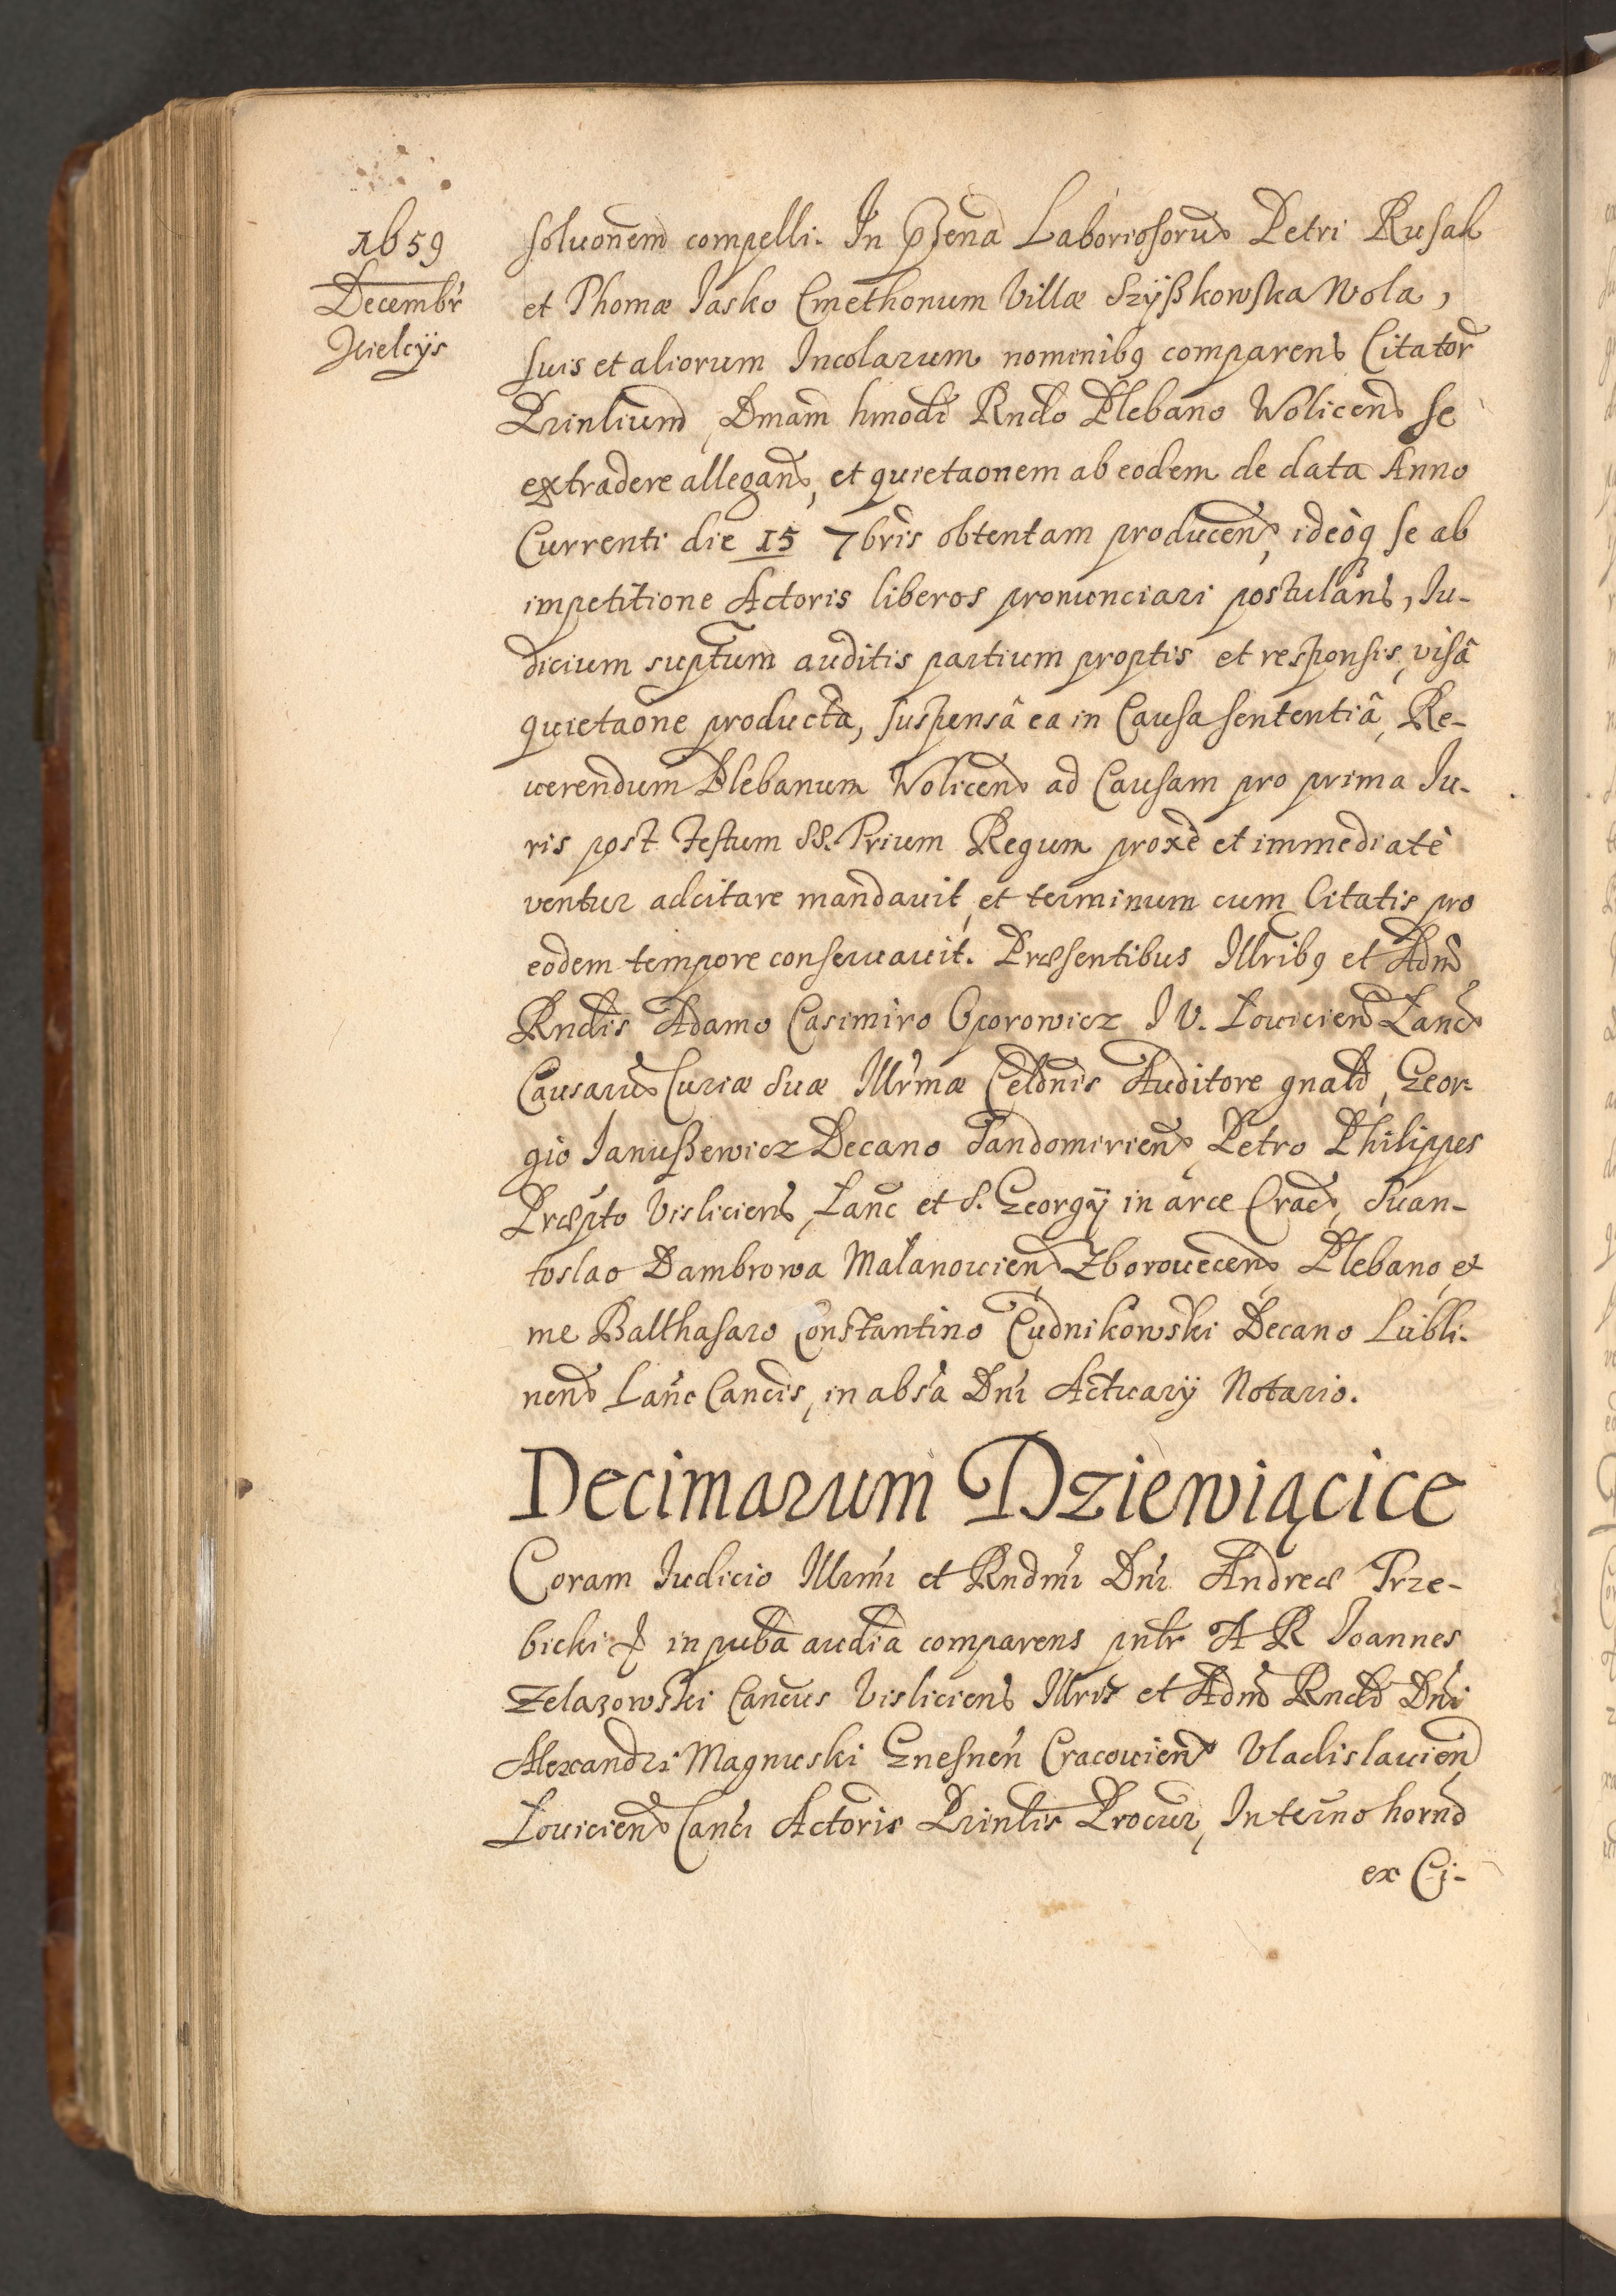 1659
Decembr
Kielcÿs
soluonem compelli. In psena Laboriosoru Petri Rusak
et Thomæ Iasko Cmethonum Villæ Szÿßkowska Wola,
suis et aliorum Incolarum nominibq comparens Citator
Prinlium, Dmam hmodi Rndo Plebano Wolicen se
extradere allegan, et quietaonem ab eodem de data Anno
Currenti die 15 7bris obtentam producen, ideòq se ab
impetitione Actoris liberos pronunciari postulans, Iu-
dicium suptum auditis partium proptis et responsis, visâ
quietaone producta, suspensâ ea in Causa sententiâ, Re-
uerendum Plebanum Wolicen ad Causam pro prima Iu-
ris post Festum SS. Trium Regum proxè et immediatè
ventur adcitare mandauit, et terminum cum Citatis pro
eodem tempore conseruauit. Præsentibus Illribq et Adm
Rndis Adamo Casimiro Oporowicz I V. Louicien Canc
Causaru Curiæ Suæ Illrmæ Celdnis Auditore gnali, Geor-
gio Ianußewicz Decano Sandomirien, Petro Philippes
Præpto Visliciens, Canc et S. Georgÿ in arce Crac, Suan-
toslao Dambrowa Malanouien Zborouecen Plebano, et
me Balthasaro Constantino Cudnikowski Decano Lubli-
nen Canc Cancis, in absa Dni Actuarÿ Notario.
Decimarum Dziewiącice
Coram Iudicio Illmi et Rndmi Dni Andreæ Trze-
bicki in puba audia comparens pntr A R Ioannes
Zelazowski Cancus Visliciens Illris et Adm Rndi Dni
Alexandri Magnuski Gnesnen Cracouien Vladislauien
Louicien Canci Actoris Prinlis Procur, In termo horno
ex Ci-